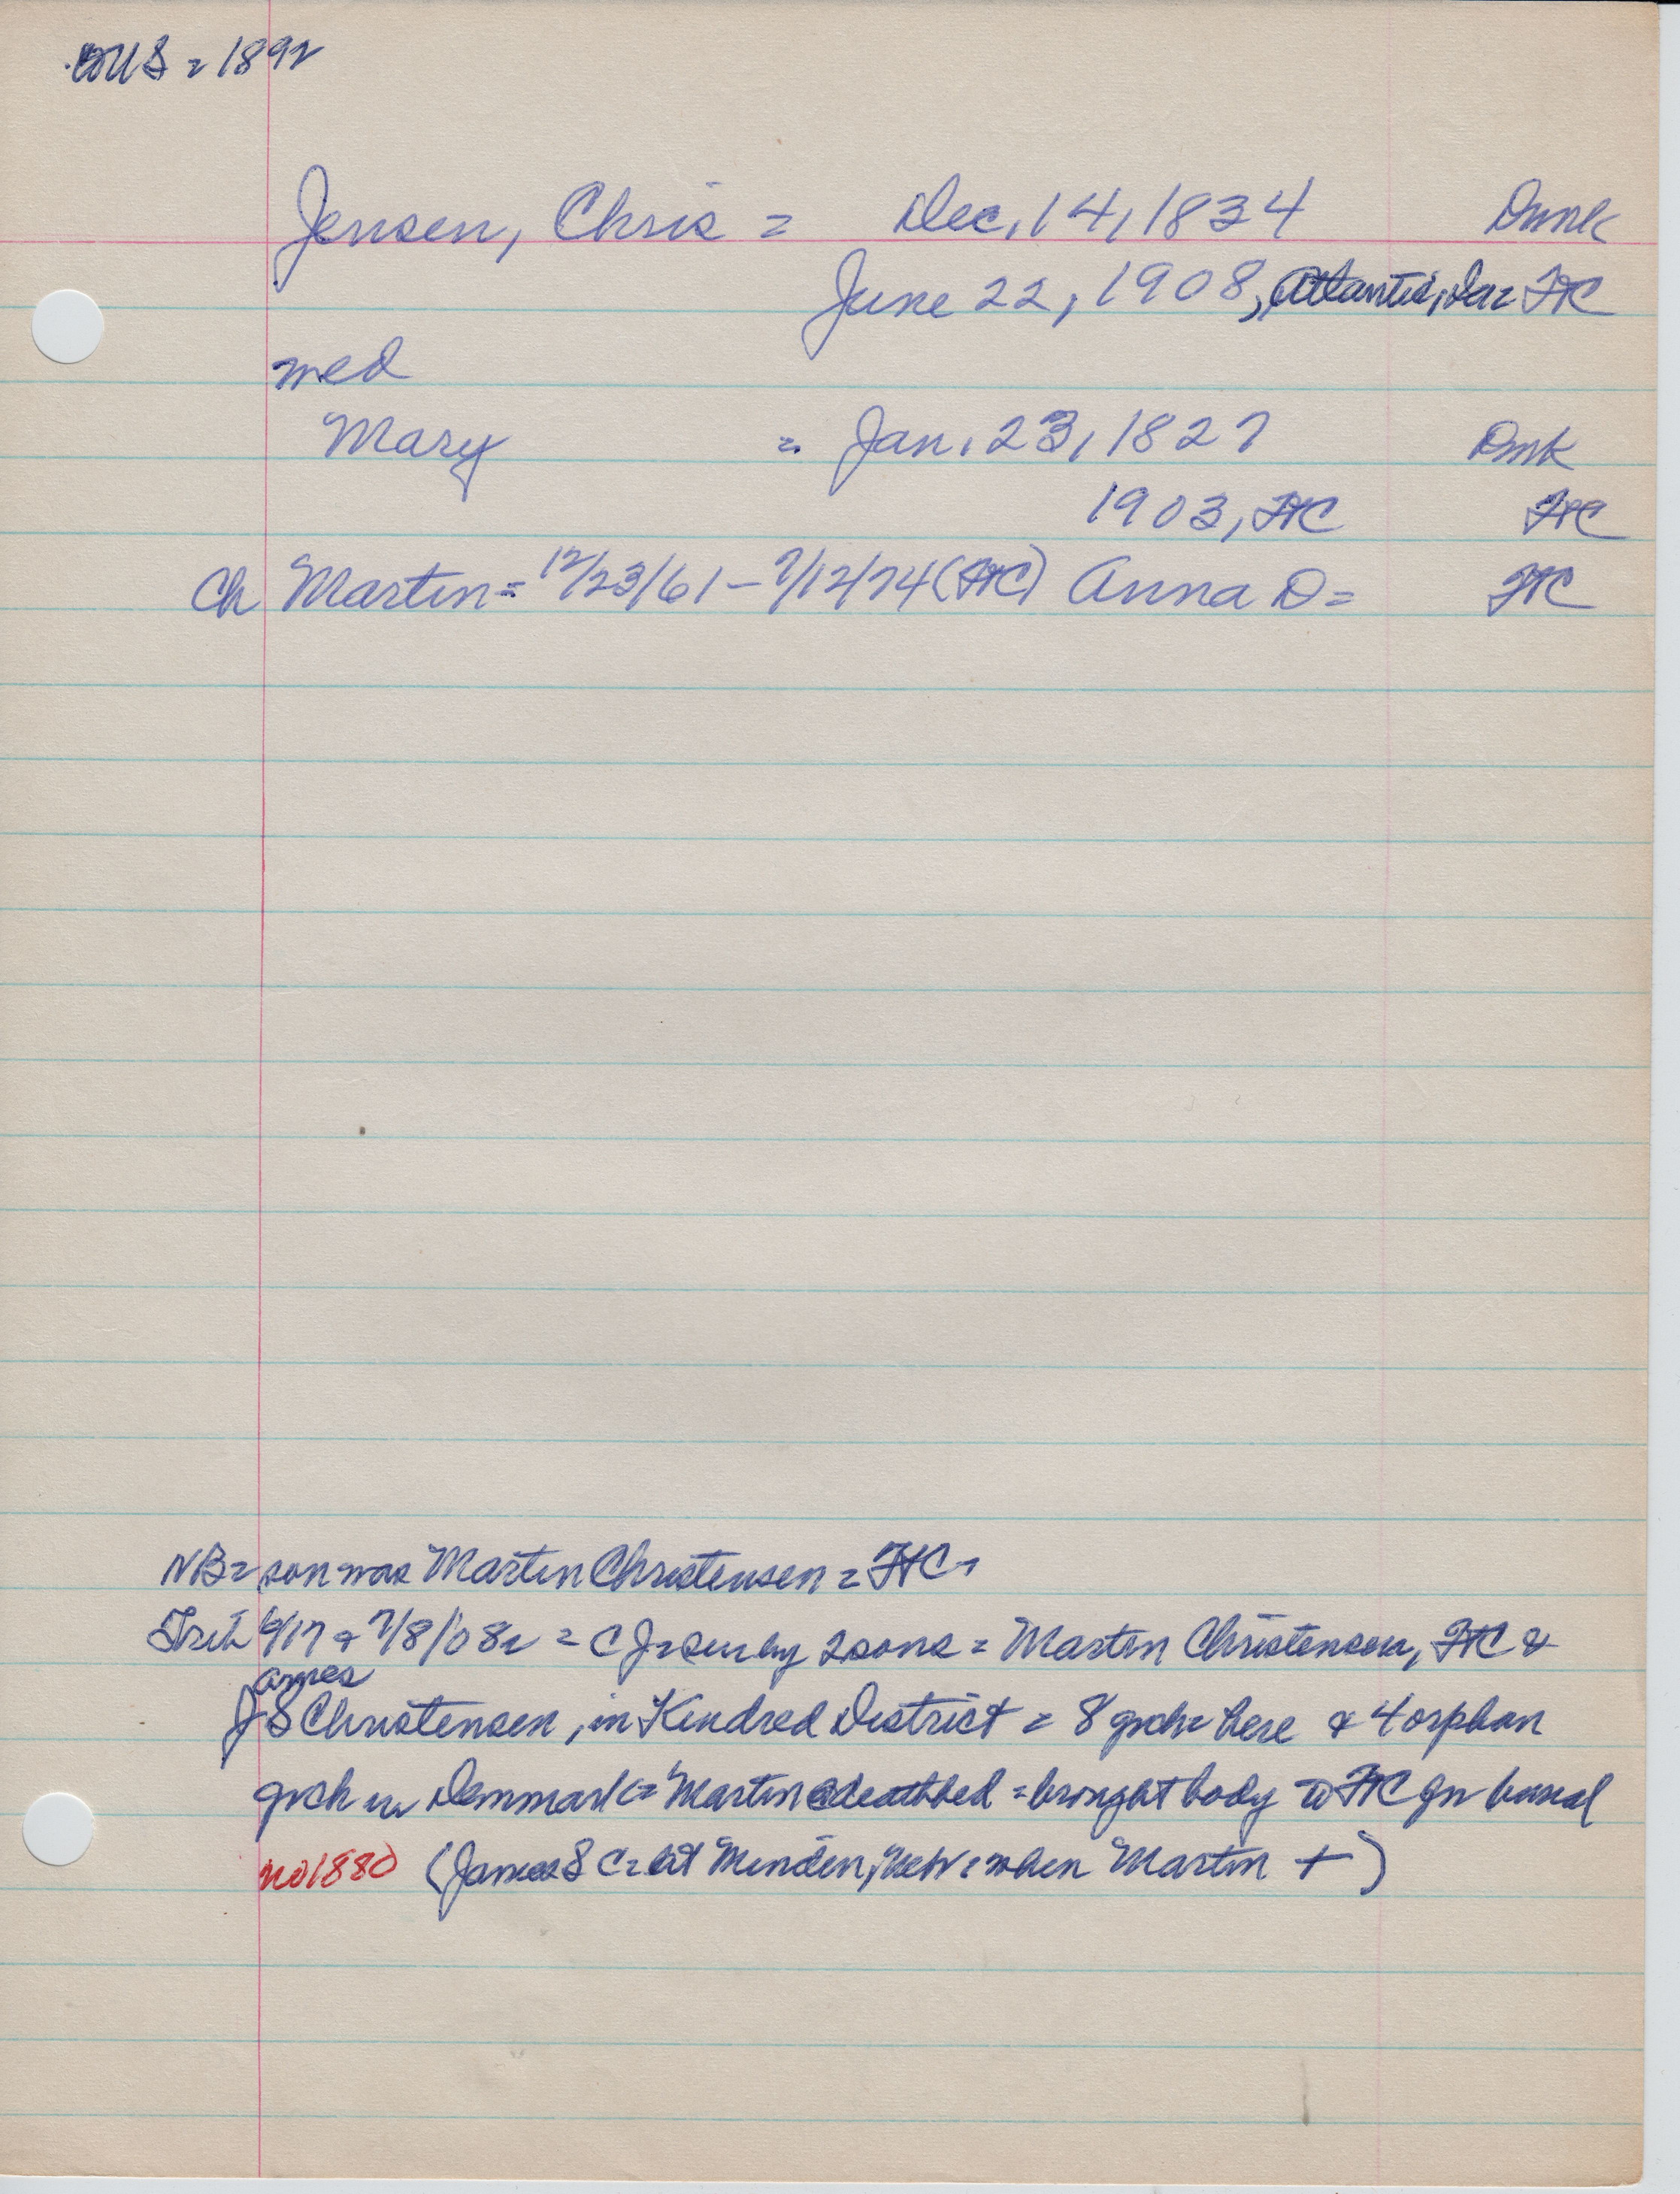 US = 1892
Jensen, Chris = Dec, 14, 1834 Dmk
June 22, 1908, Atlantic, Ia = FtC
med
Mary = Jan. 23, 1827 Dmk
1903, FtC FtC
Ch Martin = 12/23/61 - 7/12/74 (FtC) Anna D = FtC
NB = son was Martin Christensen = FtC
6/17 & 7/8/08 = C J = sur by 2 sons = Martin Christensen, FtC &
James
S Christensen, in Kendred District = 8 grch = here & 4 orphan
grch in Denmark = Martin @ deathbed = brought body to FtC for burial
no 1880 (James S C = at Minden, Neb = when Martin +)